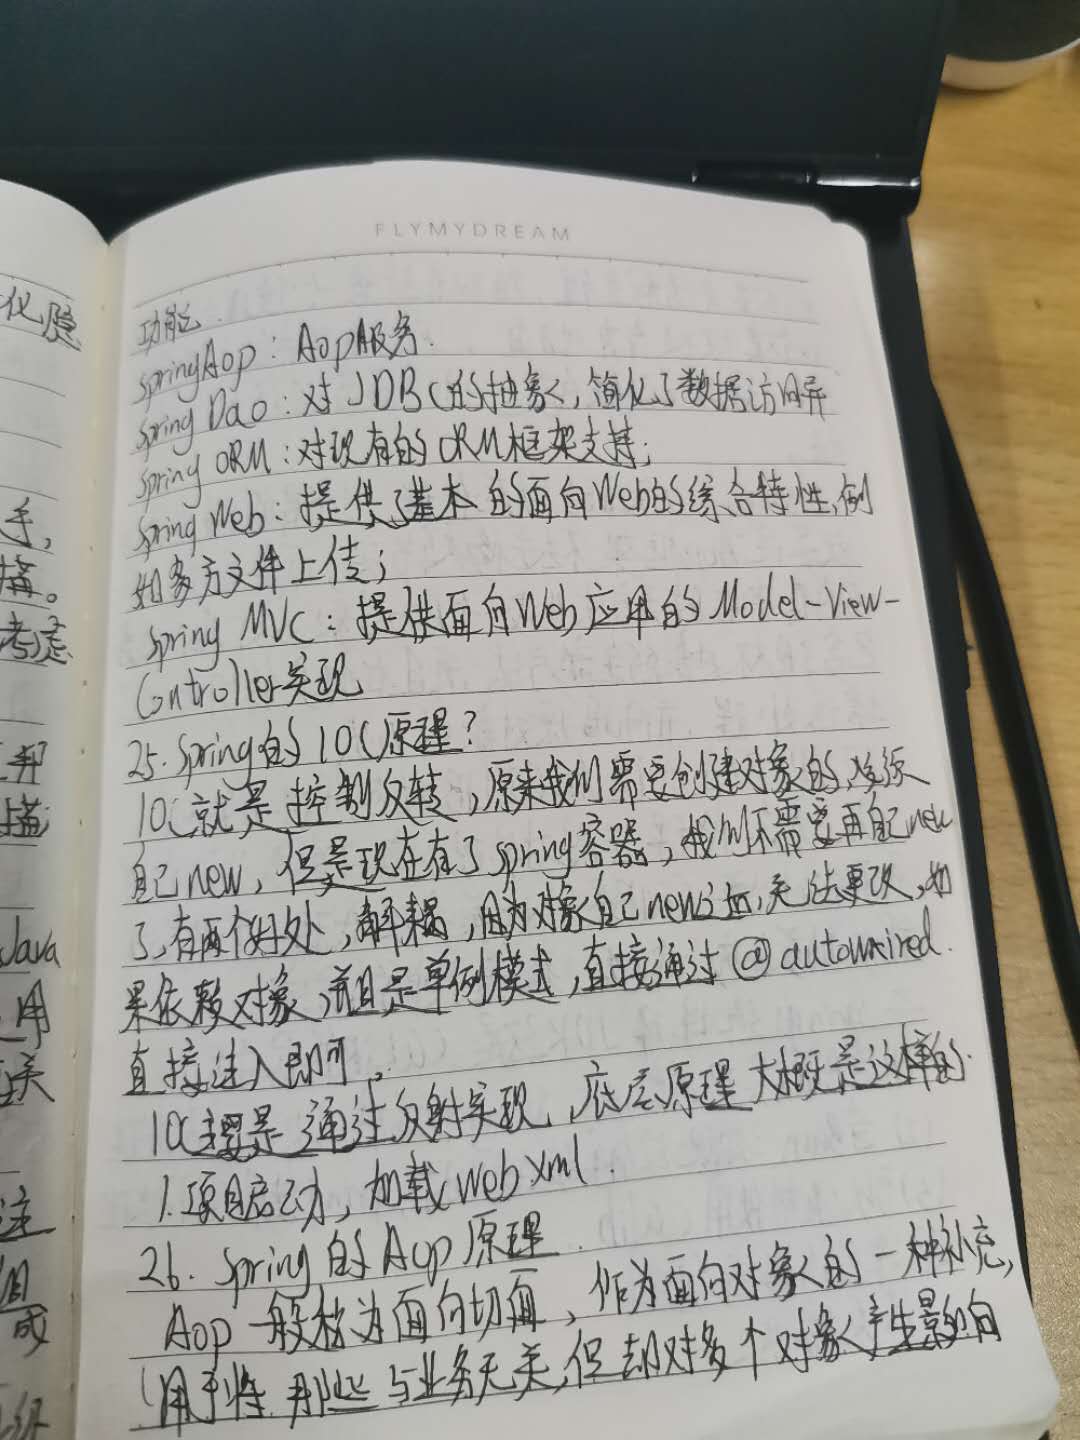 FLYMYDREAM
化隐
手，
搞。
考虑
邦
Java
用
关
注
组
成
级
功能
springAop：Aop服务.
spring Dao：对JDBC的抽象，简化了数据访问异
spring ORM：对现有的ORM框架支持；
spring Web：提供了基本的面向Web的综合特性，例
如多方文件上传；
spring MVC：提供面向Web应用的Model-View-
Controller实现
25. Spring的IOC原理？
IOC就是控制反转，原来我们需要创建对象的，
自己new，但是现在有了spring容器，我们不需要再自己new
了，有两个好处，解耦，因为对象自己new之后，无法更改，如
果依赖对象，并且是单例模式，直接通过@autowired.
直接注入即可。
IOC主要是通过反射实现，底层原理大概是这样的.
1.项目启动，加载web xml.
26. spring的Aop原理.
Aop一般称为面向切面，作为面向对象的一种补充，
用于将那些与业务无关，但却对多个对象产生影响